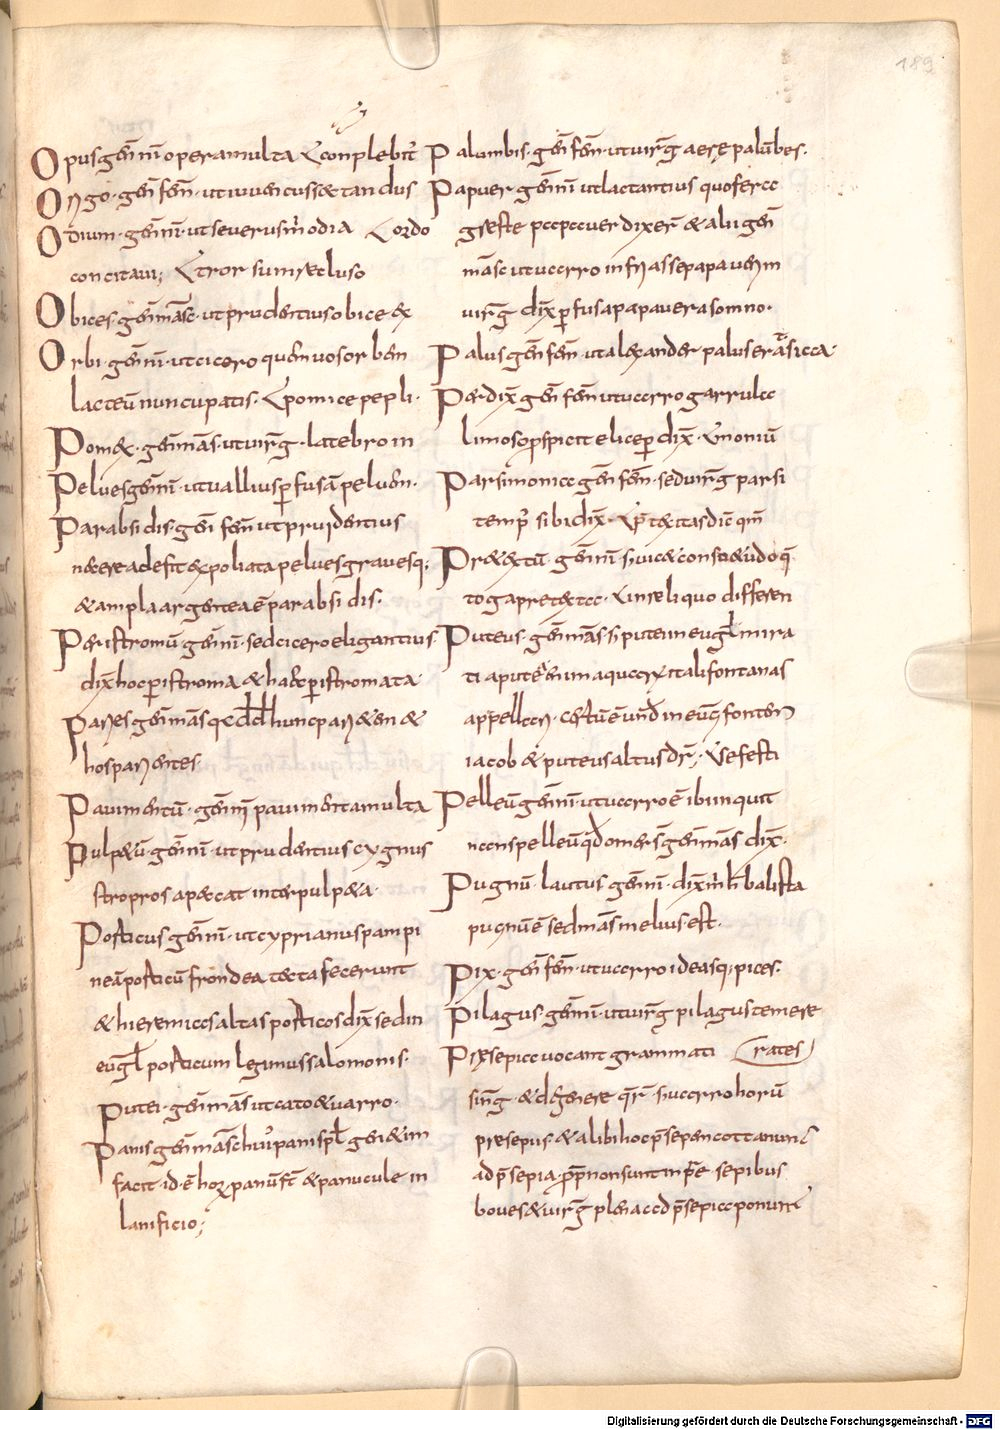 189
Opus gen̄ nī opera multa & conplebit̄
Origo · gen̄ fem̄ · ut iuuencus sæ tandus
Odium · gen̄ nī · ut seuerus m̄ odia & ordo
concitaui; & error sum recluso
Obices · gen̄ masc̄ · ut prudentius obice ex
Orbi · gen̄ nī · ut cicero quem uos orbem
lacteū nuncupatis · & pomice pepli ·
Pomex · gen̄ mās · ut uirḡ · latebro in
Pelues gen̄ nī · ut uallius ꝑfusā peluem ·
Parabsidis · gen̄ fem̄ ut prudentius
nec ere adefit expoliata pelues grauesq;
& ampla argentea ē parabsidis ·
Peristromū gen̄ nī · sed cicero eligantius
dix̄ hoc ꝑistroma & haec ꝑistromata
Paries gen̄ mās
hos parientes ·
Pauimentū · gen̄ nī pauimenta multa
Pulpetū · gen̄ nī · ut prudentius cygnus
stropros apæcat inter pulpeta ·
Porticus gen̄ nī · ut cyprianus pampi
neā porticū frondea tecta fecerunt
& hieremias altas porticos dix̄ sed in
eugl̄ porticum legimus salomonis ·
Putei · gen̄ mās ut cato & uarro ·
Panis gen̄ masc̄ huī panis pl̄ gen̄
facit id · ē horꝝ panū fc̄ & panucule in
lanificio;
Palumbis · gen̄ fem̄ · ut uirḡ aereę palūbes ·
Papuer gen̄ nī ut lactantius quo fer ca
græste papauer dixer̄ & alii gen̄
masc̄ ut uarro infriasse papauerem
uirḡ dix̄ ꝑfusa papauera somno ·
Palus gen̄ fem̄ · ut alexander palus erat sicca ·
Perdix̄ gen̄ fem̄ ut uarro garrula
limoso ꝓspicit elice ꝑdix̄ ·
Parsimonia gen̄ fem̄ · sed uirḡ parsi
temp̄ sibi dix̄ ·
Prætextū · gen̄ nī
toga pretexta · & in reliquo differen
Puteus · gen̄ mās · si puteum eugl̄ mira
ti a pute enim aquæ
appellan ·
iacob & puteus altus dr̄;
Pelleū gen̄ nī · ut uarro
Pugnū · lautus gen̄ nī · dix̄ balista
pugnū ē sed mās melius est ·
Pix · gen̄ fem̄ · ut uarro ideasq; pices ·
Pilagus · gen̄ nī · ut uirḡ pilagus temere
Præsepia uocant grammati rates
sinḡ · & de genere qr̄ · Huarro horū
presepus & alibi hoc p̄sepe
ad p̄sepia · ꝓp̄ non sunt in p̄re sepibus
boues & uirḡ plena ad p̄sepia ponunt
Digitalisierung gefördert durch die Deutsche Forschungsgemeinschaft - DFG